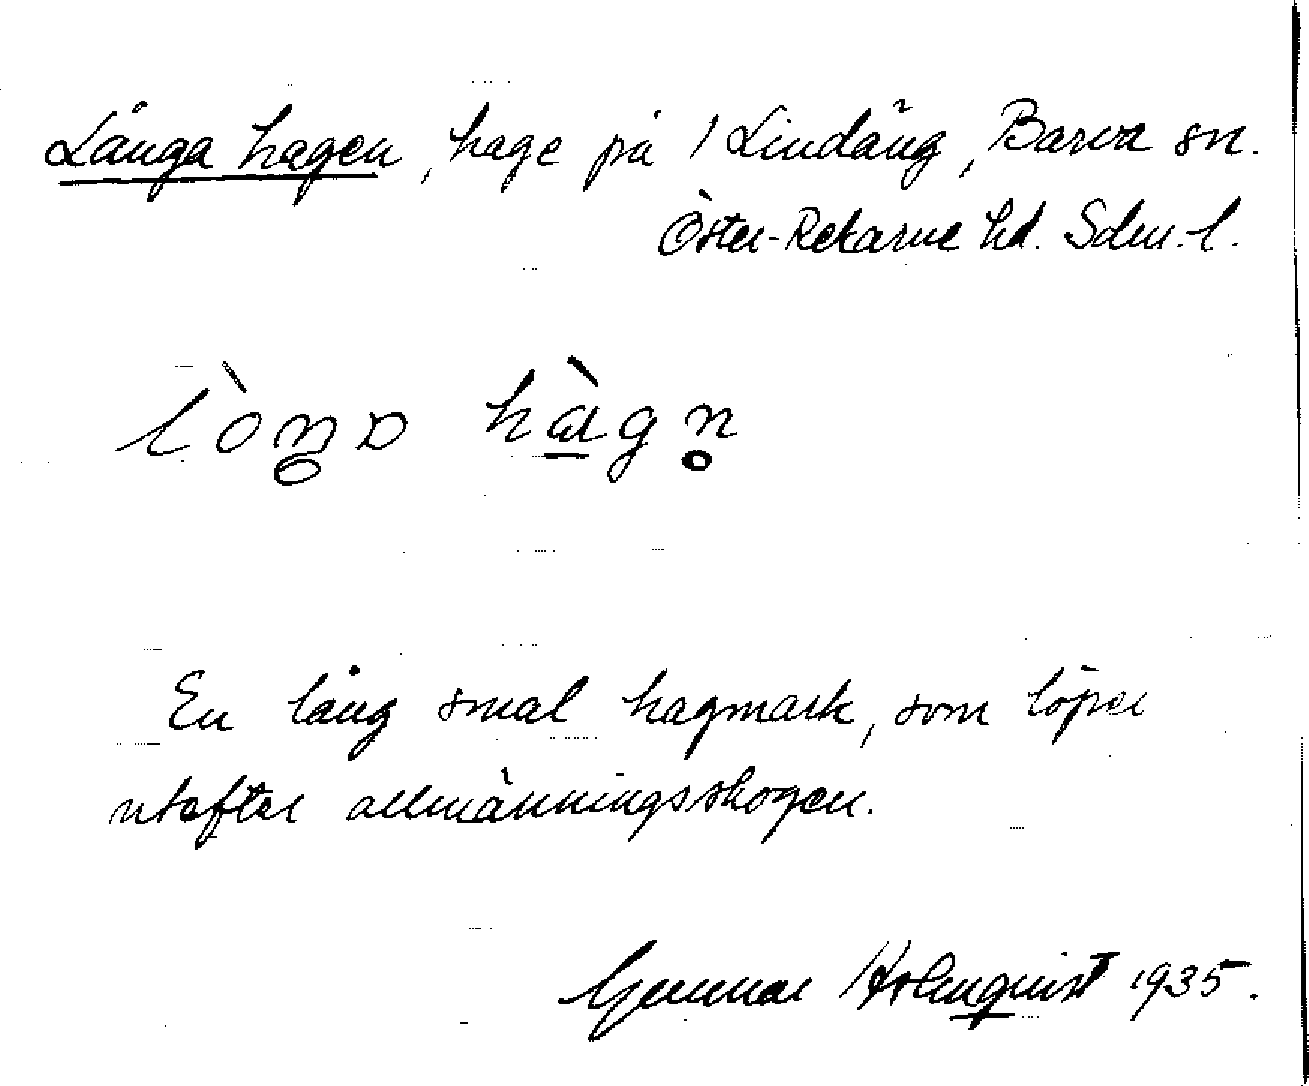 Långa hagen, hage på / Lindäng, Barva sn.
Öster-Rekarne hd. Sdm. l.
lòŋa hàgn̥
En lång smal hagmark, som löper
utefter allmänningsskogen.
Gunnar Holmquist 1935.